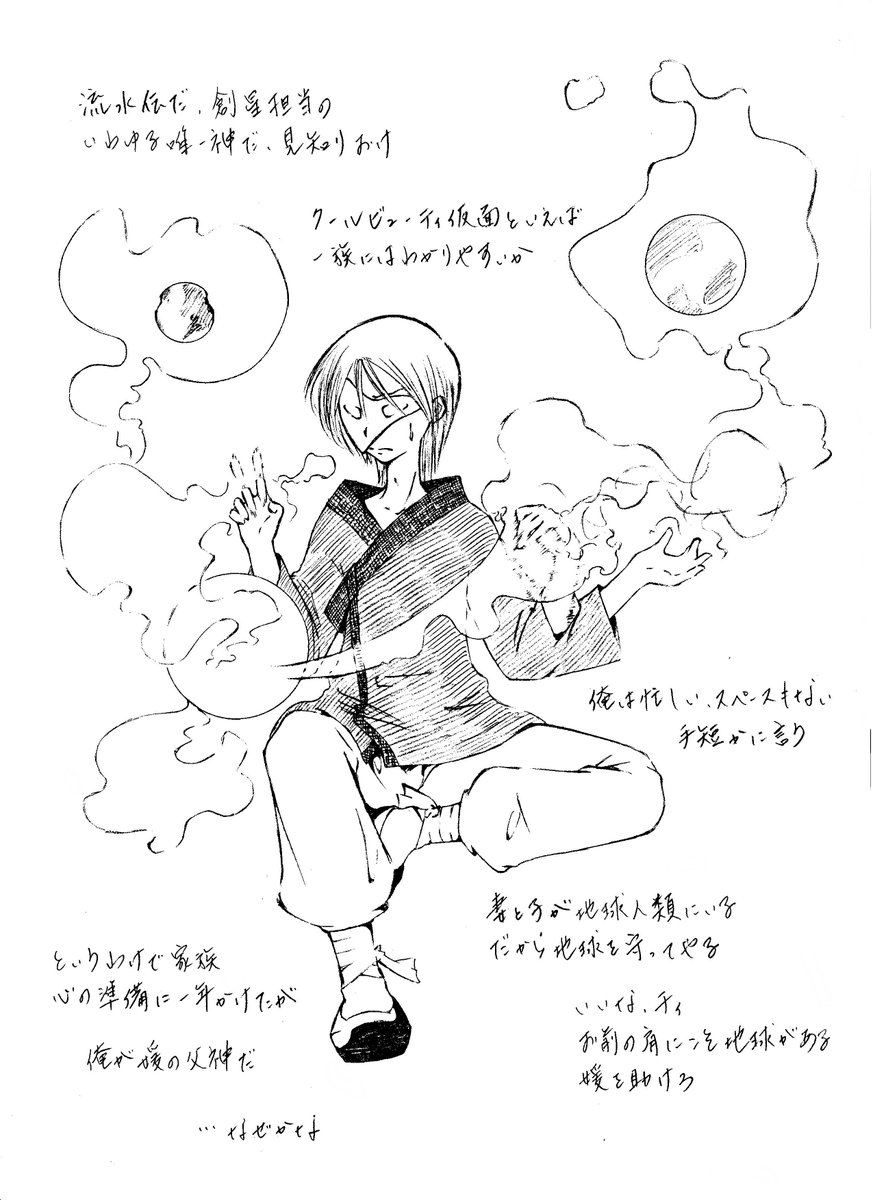 流水伝だ、創星担当の
いわゆる唯一神だ、見知りおけ
クールビューティ仮面といえば
一族にはわかりやすいか
俺は忙しい、スペースもない
手短かに言う
妻と子が地球人類にいる
だから地球を守ってやる
というわけで家族
心の準備に一年かけたが
俺が媛の父神だ
…なぜかな
いいな、ティ
お前の肩にこそ地球がある
媛を助けろ